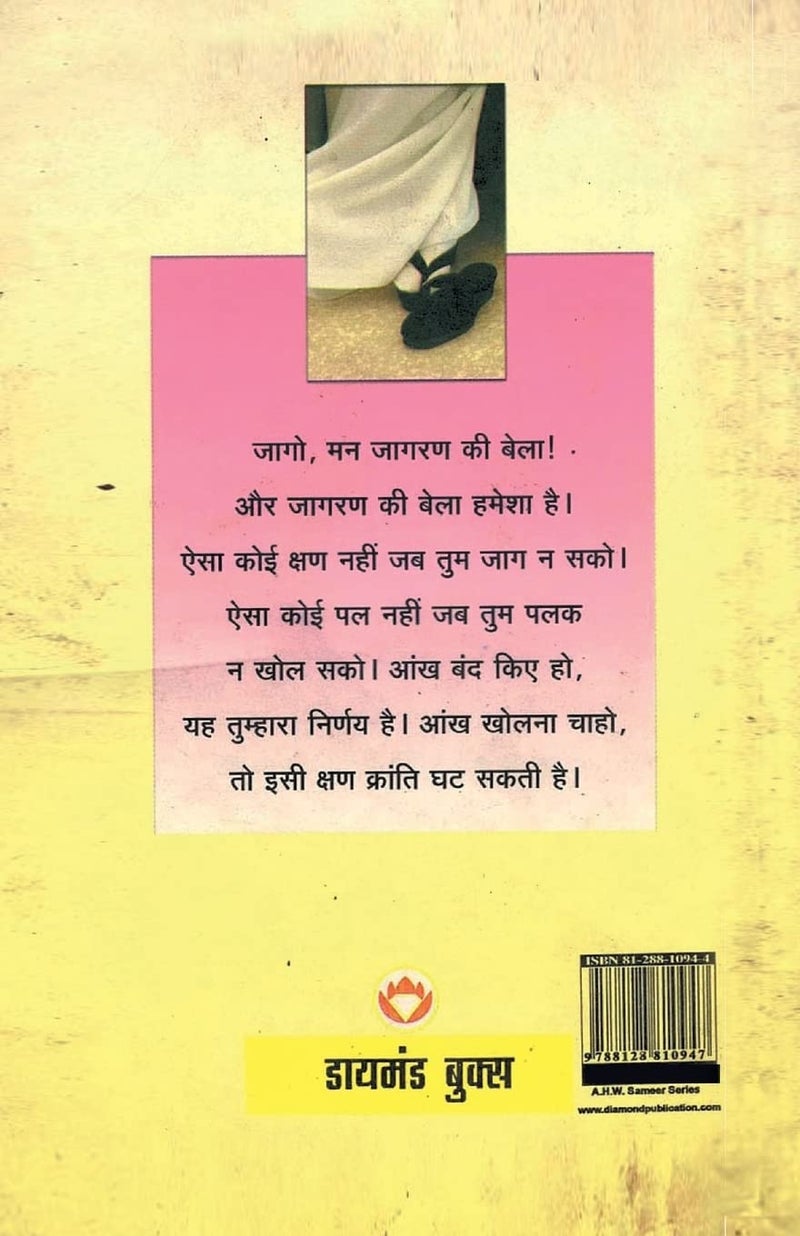 जागो, मन जागरण की बेला!
और जागरण की बेला हमेशा है।
ऐसा कोई क्षण नहीं जब तुम जाग न सको।
ऐसा कोई पल नहीं जब तुम पलक
न खोल सको। आंख बंद किए हो,
यह तुम्हारा निर्णय है। आंख खोलना चाहो,
तो इसी क्षण क्रांति घट सकती है।
ISBN 81-288-1094-4
9788128810947
डायमंड बुक्स
A.H.W. Sameer Series
www.diamondpublication.com